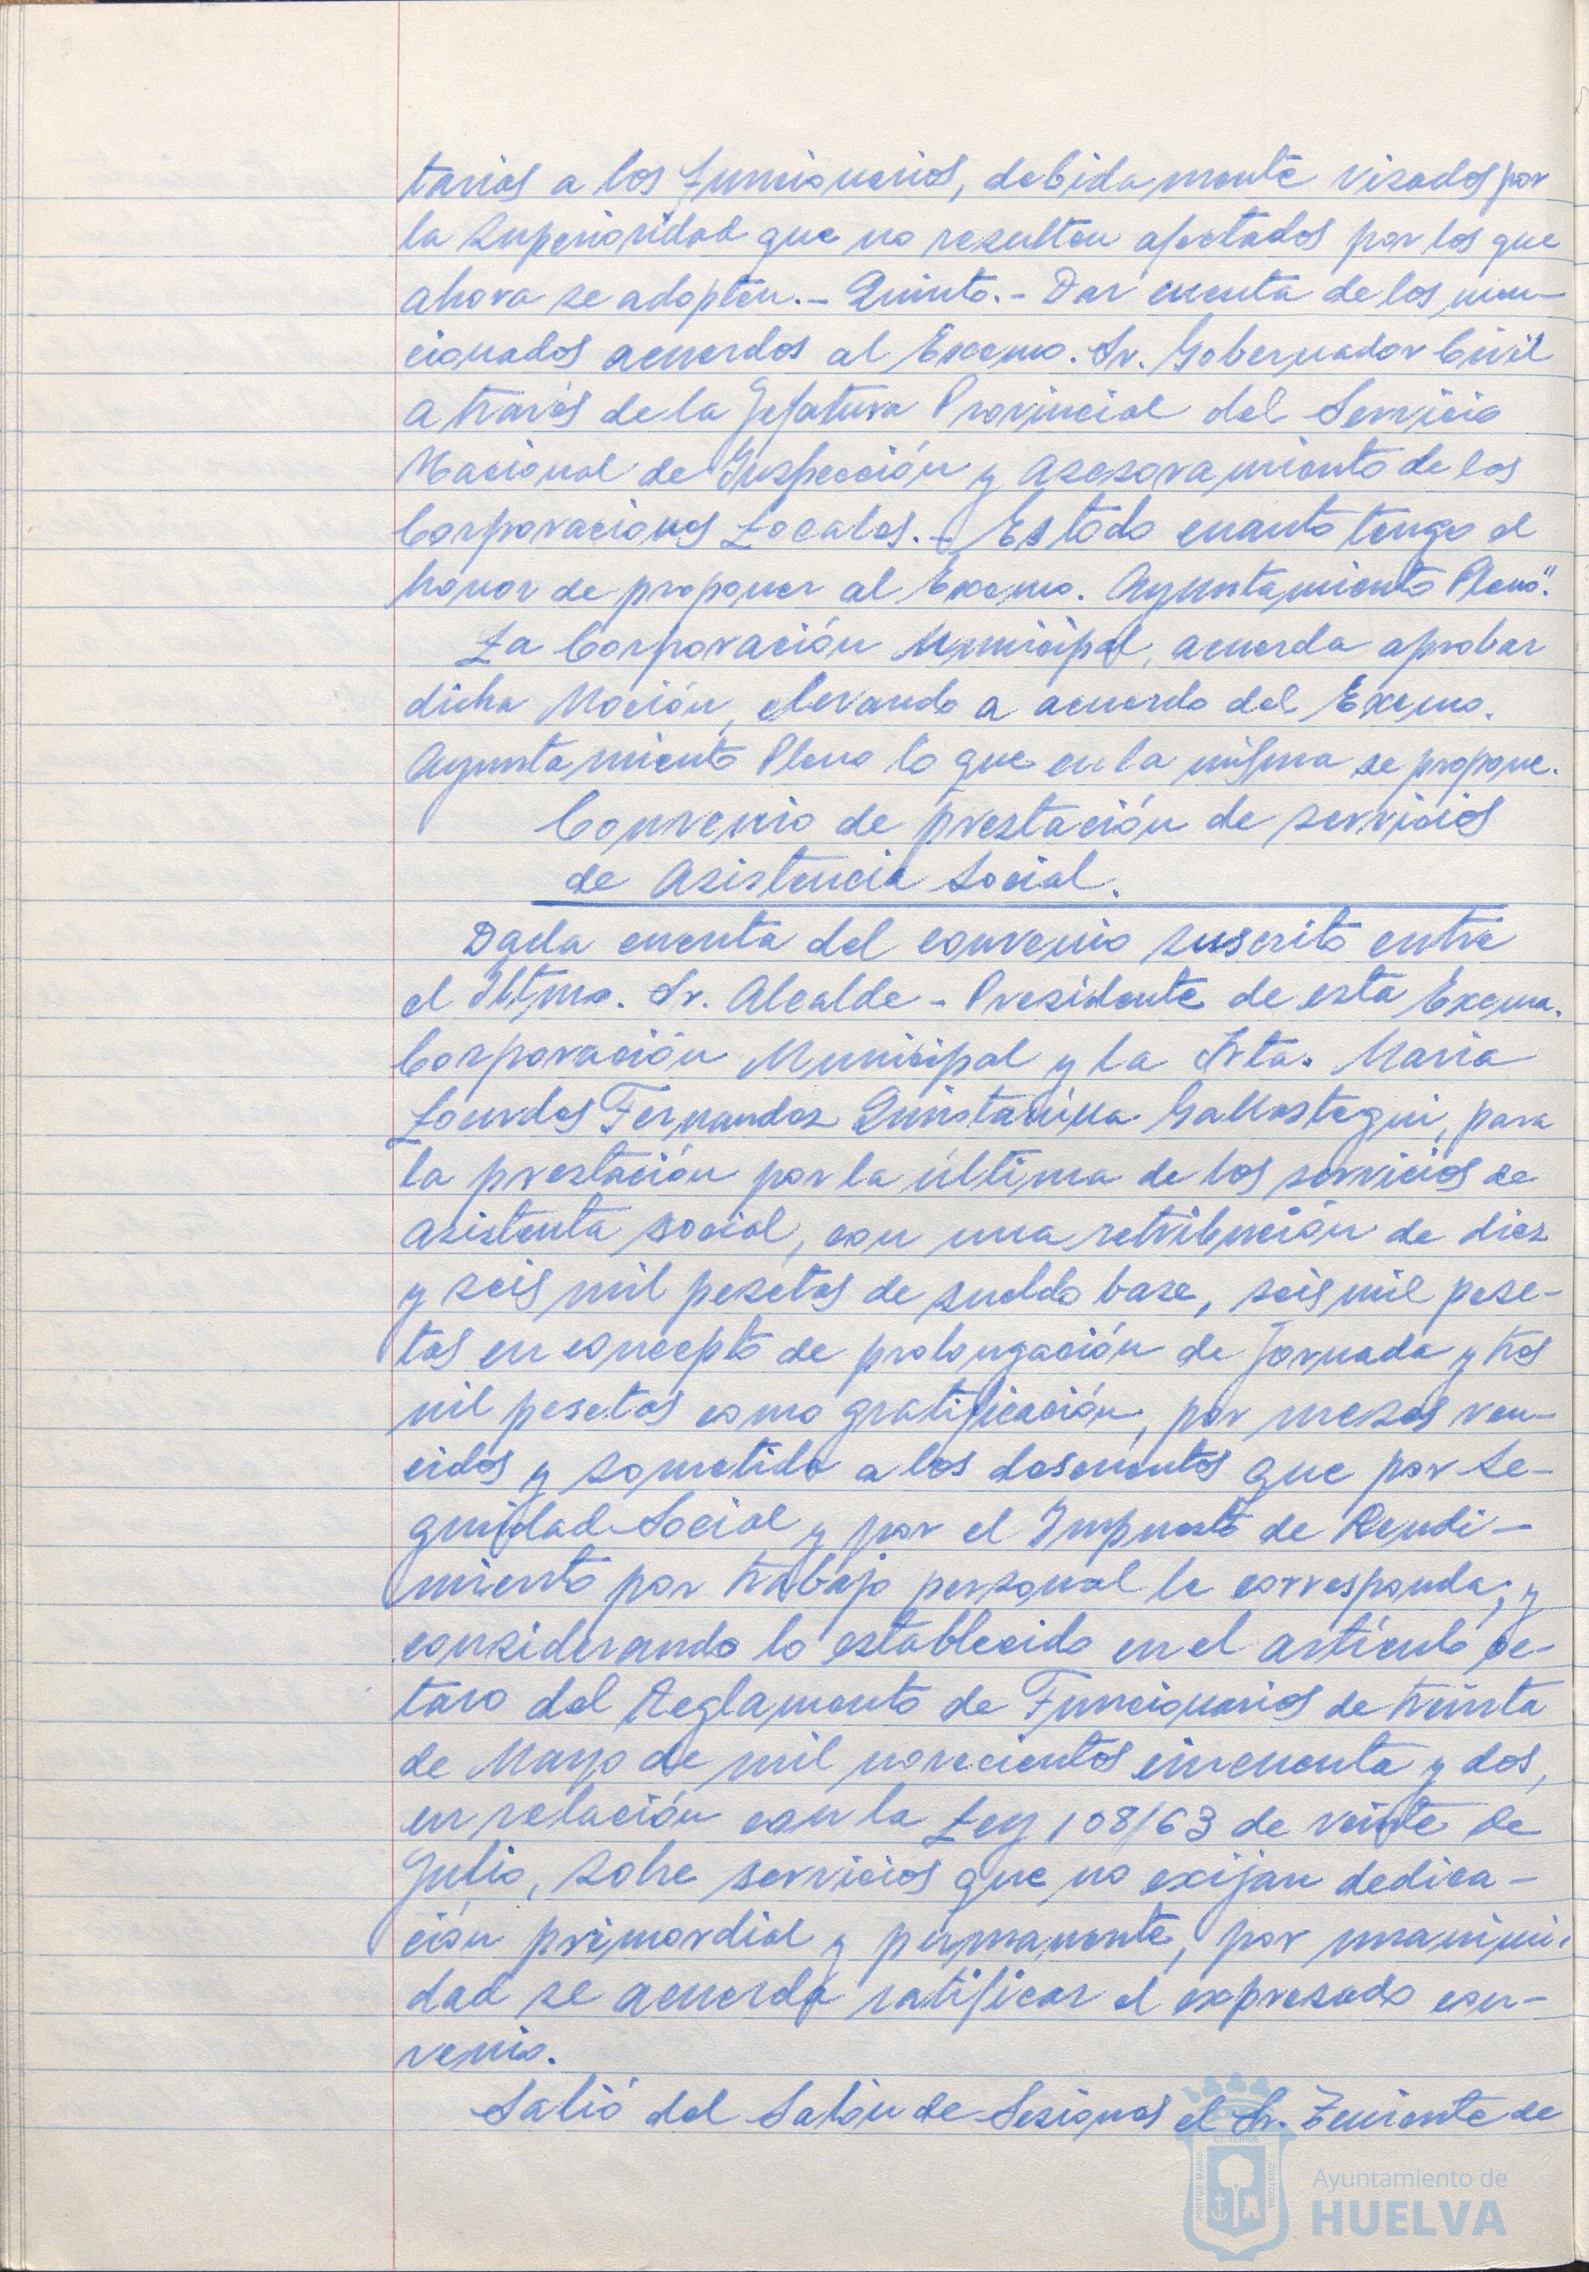 tarios a los funcionarios, debidamente visados por
la Superioridad que no resulten afectados por los que
ahora se adopten.- Quinto.- Dar cuenta de los men-
cionados acuerdos al Excmo. Sr. Gobernador Civil
a través de la Jefatura Provincial del Servicio
Nacional de Inspección y Asesoramiento de las
Corporaciones Locales.- Es todo cuanto tengo el
honor de proponer al Excmo. Ayuntamiento Pleno".
La Corporación Municipal, acuerda aprobar
dicha Moción, elevando a acuerdo del Excmo.
Ayuntamiento Pleno lo que en la misma se propone.
Convenio de prestación de servicios
de Asistencia Social.
Dada cuenta del convenio suscrito entre
el Iltmo. Sr. Alcalde-Presidente de esta Excma.
Corporación Municipal y la Srta. Maria
Lourdes Fernandez Quintanilla Gallastegui, para
la prestación por la última de los servicios de
asistenta social, con una retribución de diez
y seis mil pesetas de sueldo base, seis mil pese-
tas en concepto de prolongación de jornada y tres
mil pesetas como gratificación, por meses ven-
cidos y sometido a los descuentos que por Se-
guridad Social y por el Impuesto de Rendi-
miento por trabajo personal le corresponda; y
considerando lo establecido en el artículo oc-
tavo del Reglamento de Funcionarios de treinta
de Mayo de mil novecientos cincuenta y dos,
en relación con la Ley 108/63 de veinte de
Julio, sobre servicios que no exijan dedica-
ción primordial y permanente, por unanimi-
dad se acuerda ratificar el expresado con-
venio.
Salió del Salón de Sesiones el Sr. Teniente de
PORTUS MARIS ET TERRAE CUSTODIA
Ayuntamiento de
HUELVA